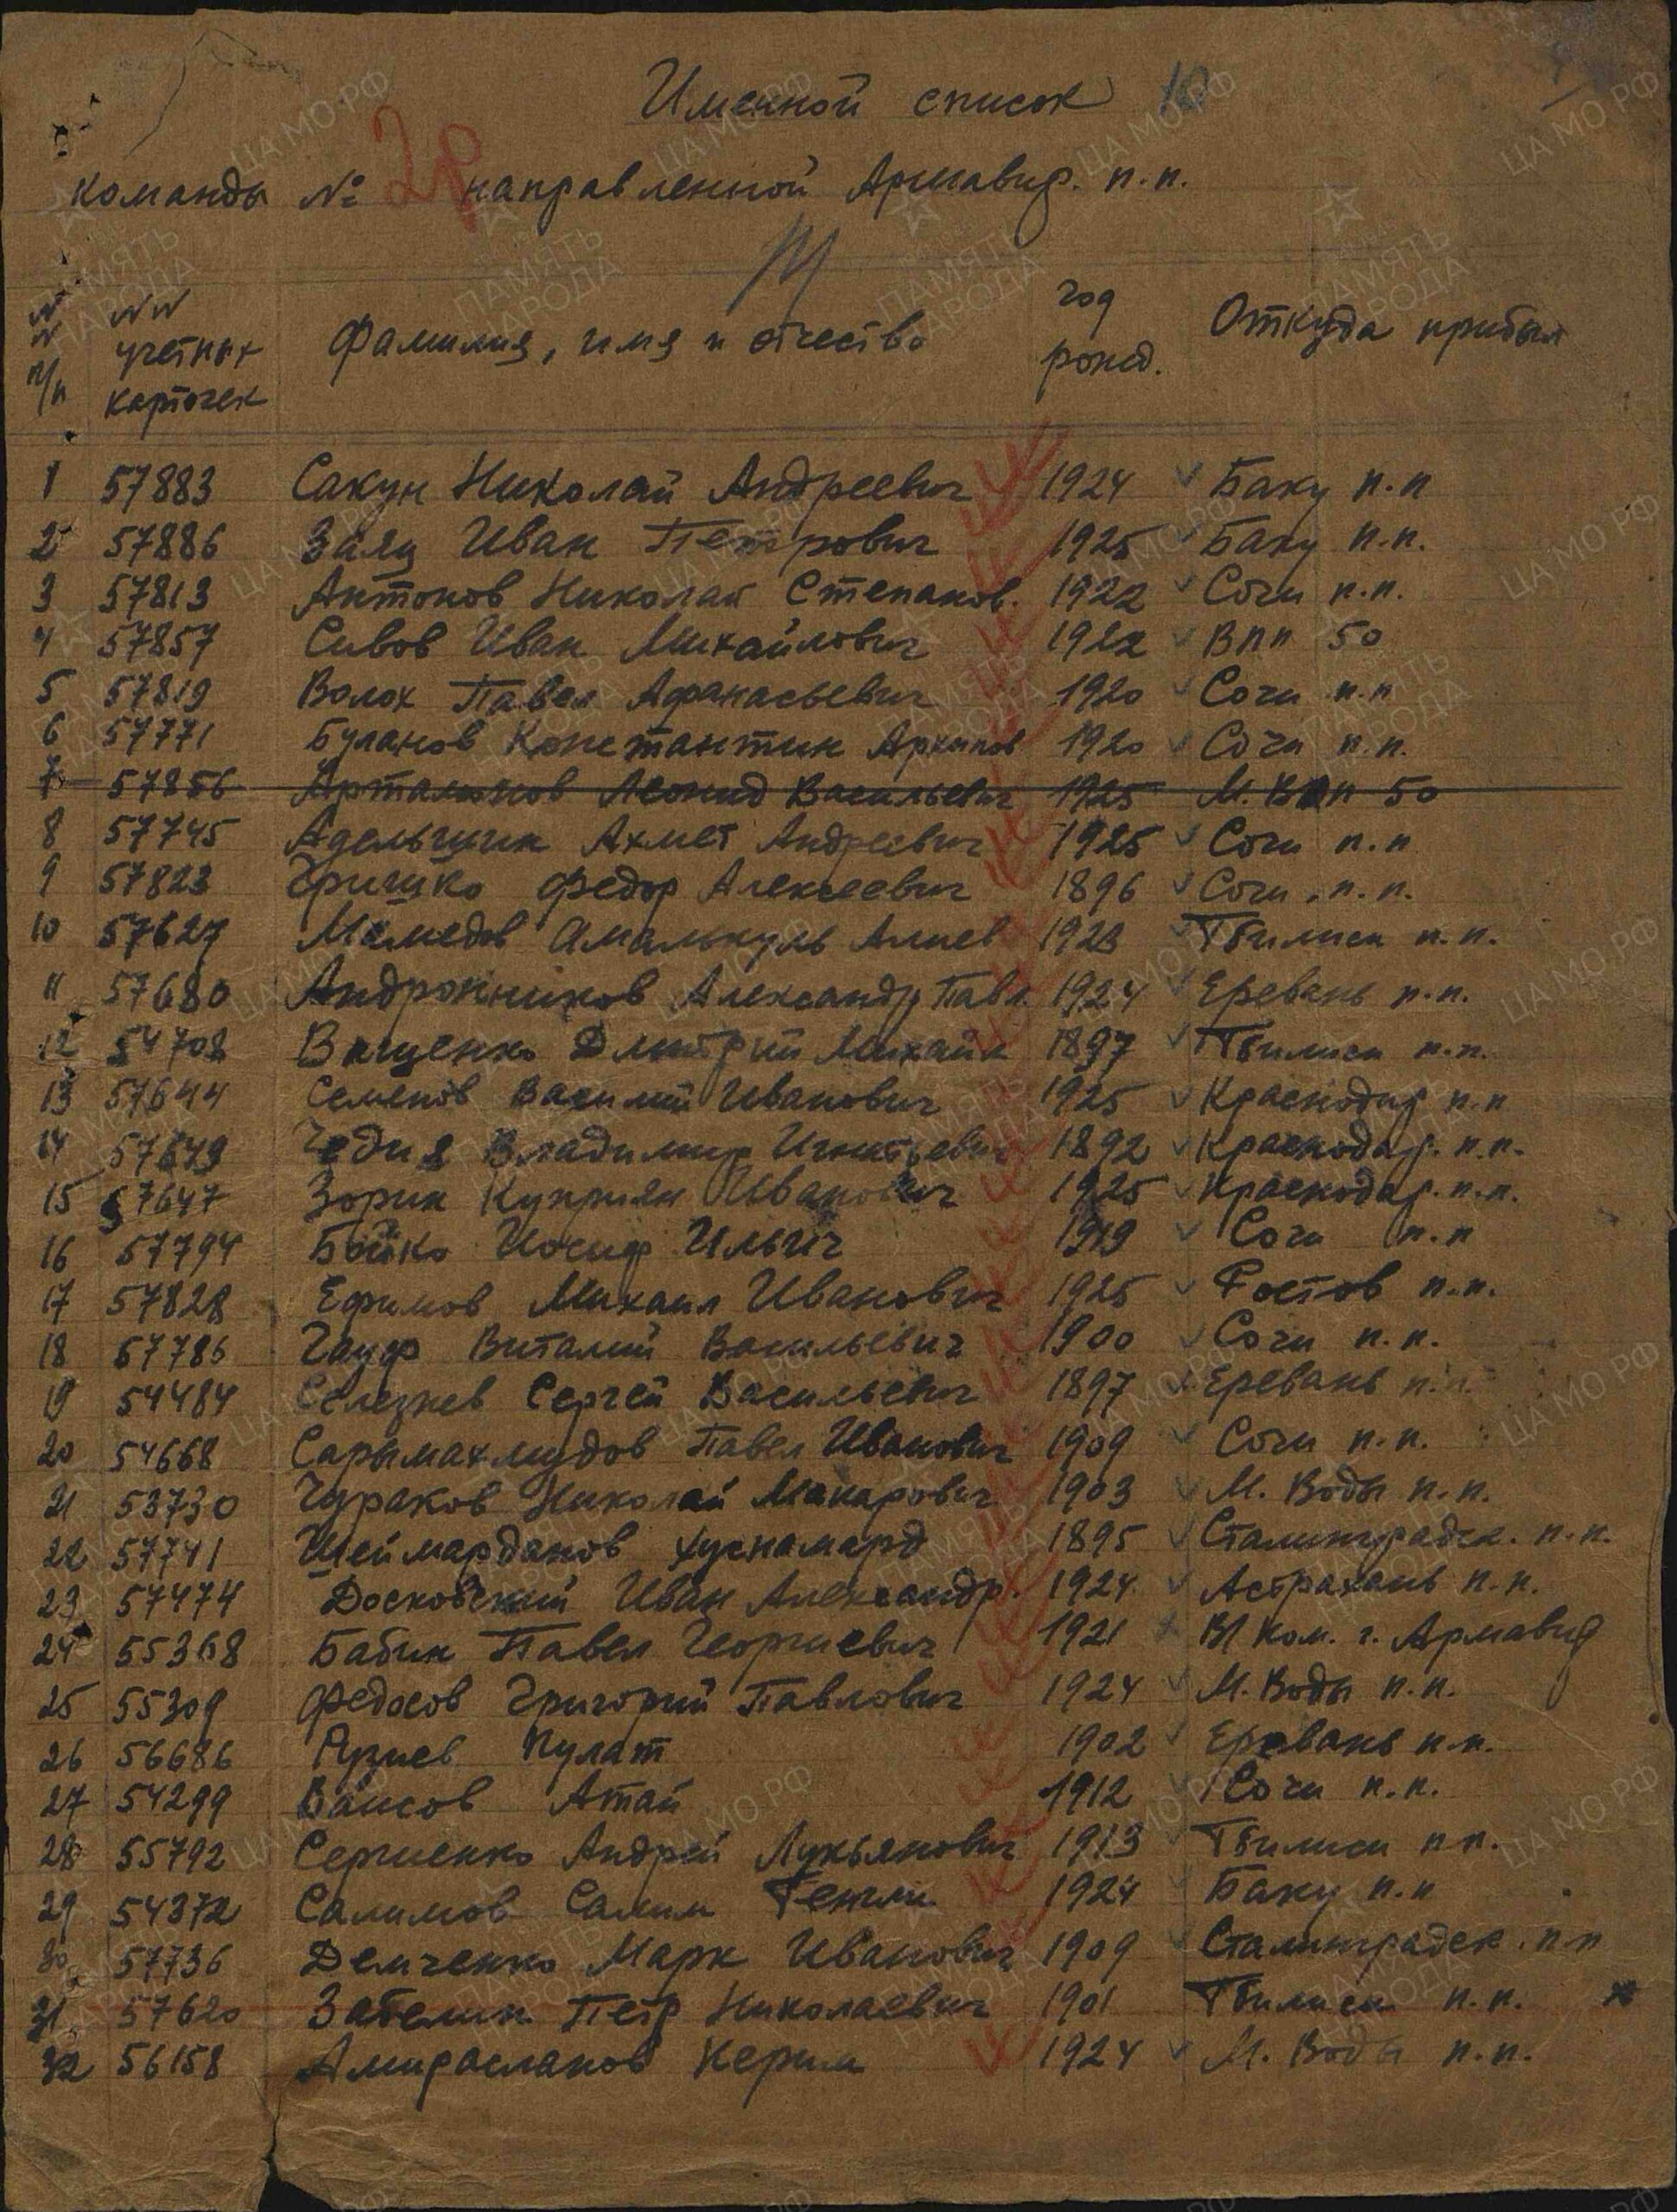 Именной список 10
команды № 28 направленной Армавир. п.п.
№ № п/п №№ учетных карточек Фамилия, имя и отчество год рожд. Откуда прибыл
1 57883 Сакун Николай Андреевич 1924 Баку п.п
2 57886 Заяц Иван Петрович 1925 Баку п.п.
3 57813 Антонов Николай Степанов. 1922 Сочи п.п.
4 57857 Сивов Иван Михайлович 1922 ВПП 50
5 57819 Волох Павел Афанасьевич 1920 Сочи п.п
6 57771 Буланов Константин Архипов 1920 Сочи п.п.
7 57856 Арталионов Леонид Васильевич 1925 М. Впп 50
8 57745 Адельшин Ахмет Андреевич 1925 Сочи п.п
9 57823 Гришко Федор Алексеевич 1896 Сочи п.п.
10 57627 Мамедов Амалькуль Алиев 1923 Тбилиси п.п.
11 57680 Андронников Александр Павл 1924 Еревань п.п.
12 54708 Ващенко Дмитрий Михайл 1897 Тбилиси п.п.
13 57644 Семенов Василий Иванович 1925 Краснодар п.п
14 57649 Чедия Владимир Игнатьевич 1892 Краснодар. п.п.
15 57647 Зорин Куприян Иванович 1925 Краснодар. п.п.
16 57794 Бойко Иосиф Ильич 1919 Сочи п.п
17 57828 Ефимов Михаил Иванович 1925 Ростов п.п.
18 57786 Гауф Виталий Васильевич 1900 Сочи п.п.
19 54484 Селезнев Сергей Васильевич 1897 Еревань п.п.
20 54668 Сарымахмудов Павел Иванович 1909 Сочи п.п.
21 53730 Чураков Николай Макарович 1903 М. Воды п.п.
22 57741 Шеймарданов Хуснамард 1895 Сталинградск. п.п.
23 57474 Досковский Иван Александр. 1924 Астрахань п.п.
24 55368 Бабин Павел Георгиевич 1921 В/ ком. г. Армавир
25 55309 Федосов Григорий Павлович 1924 М. Воды п.п.
26 56686 Рузиев Пулат 1902 Еревань п.п.
27 54299 Ваисов Атай 1912 Сочи п.п.
28 55792 Сергиенко Андрей Лукьянович 1913 Тбилиси п п.
29 54372 Салимов Салим 1924 Баку п.п
30 57736 Демченко Марк Иванович 1909 Сталинградск. п.п
31 57620 Забелин Петр Николаевич 1901 Тбилиси п.п.
32 56158 Амирасланов Керим 1924 М. Воды п.п.